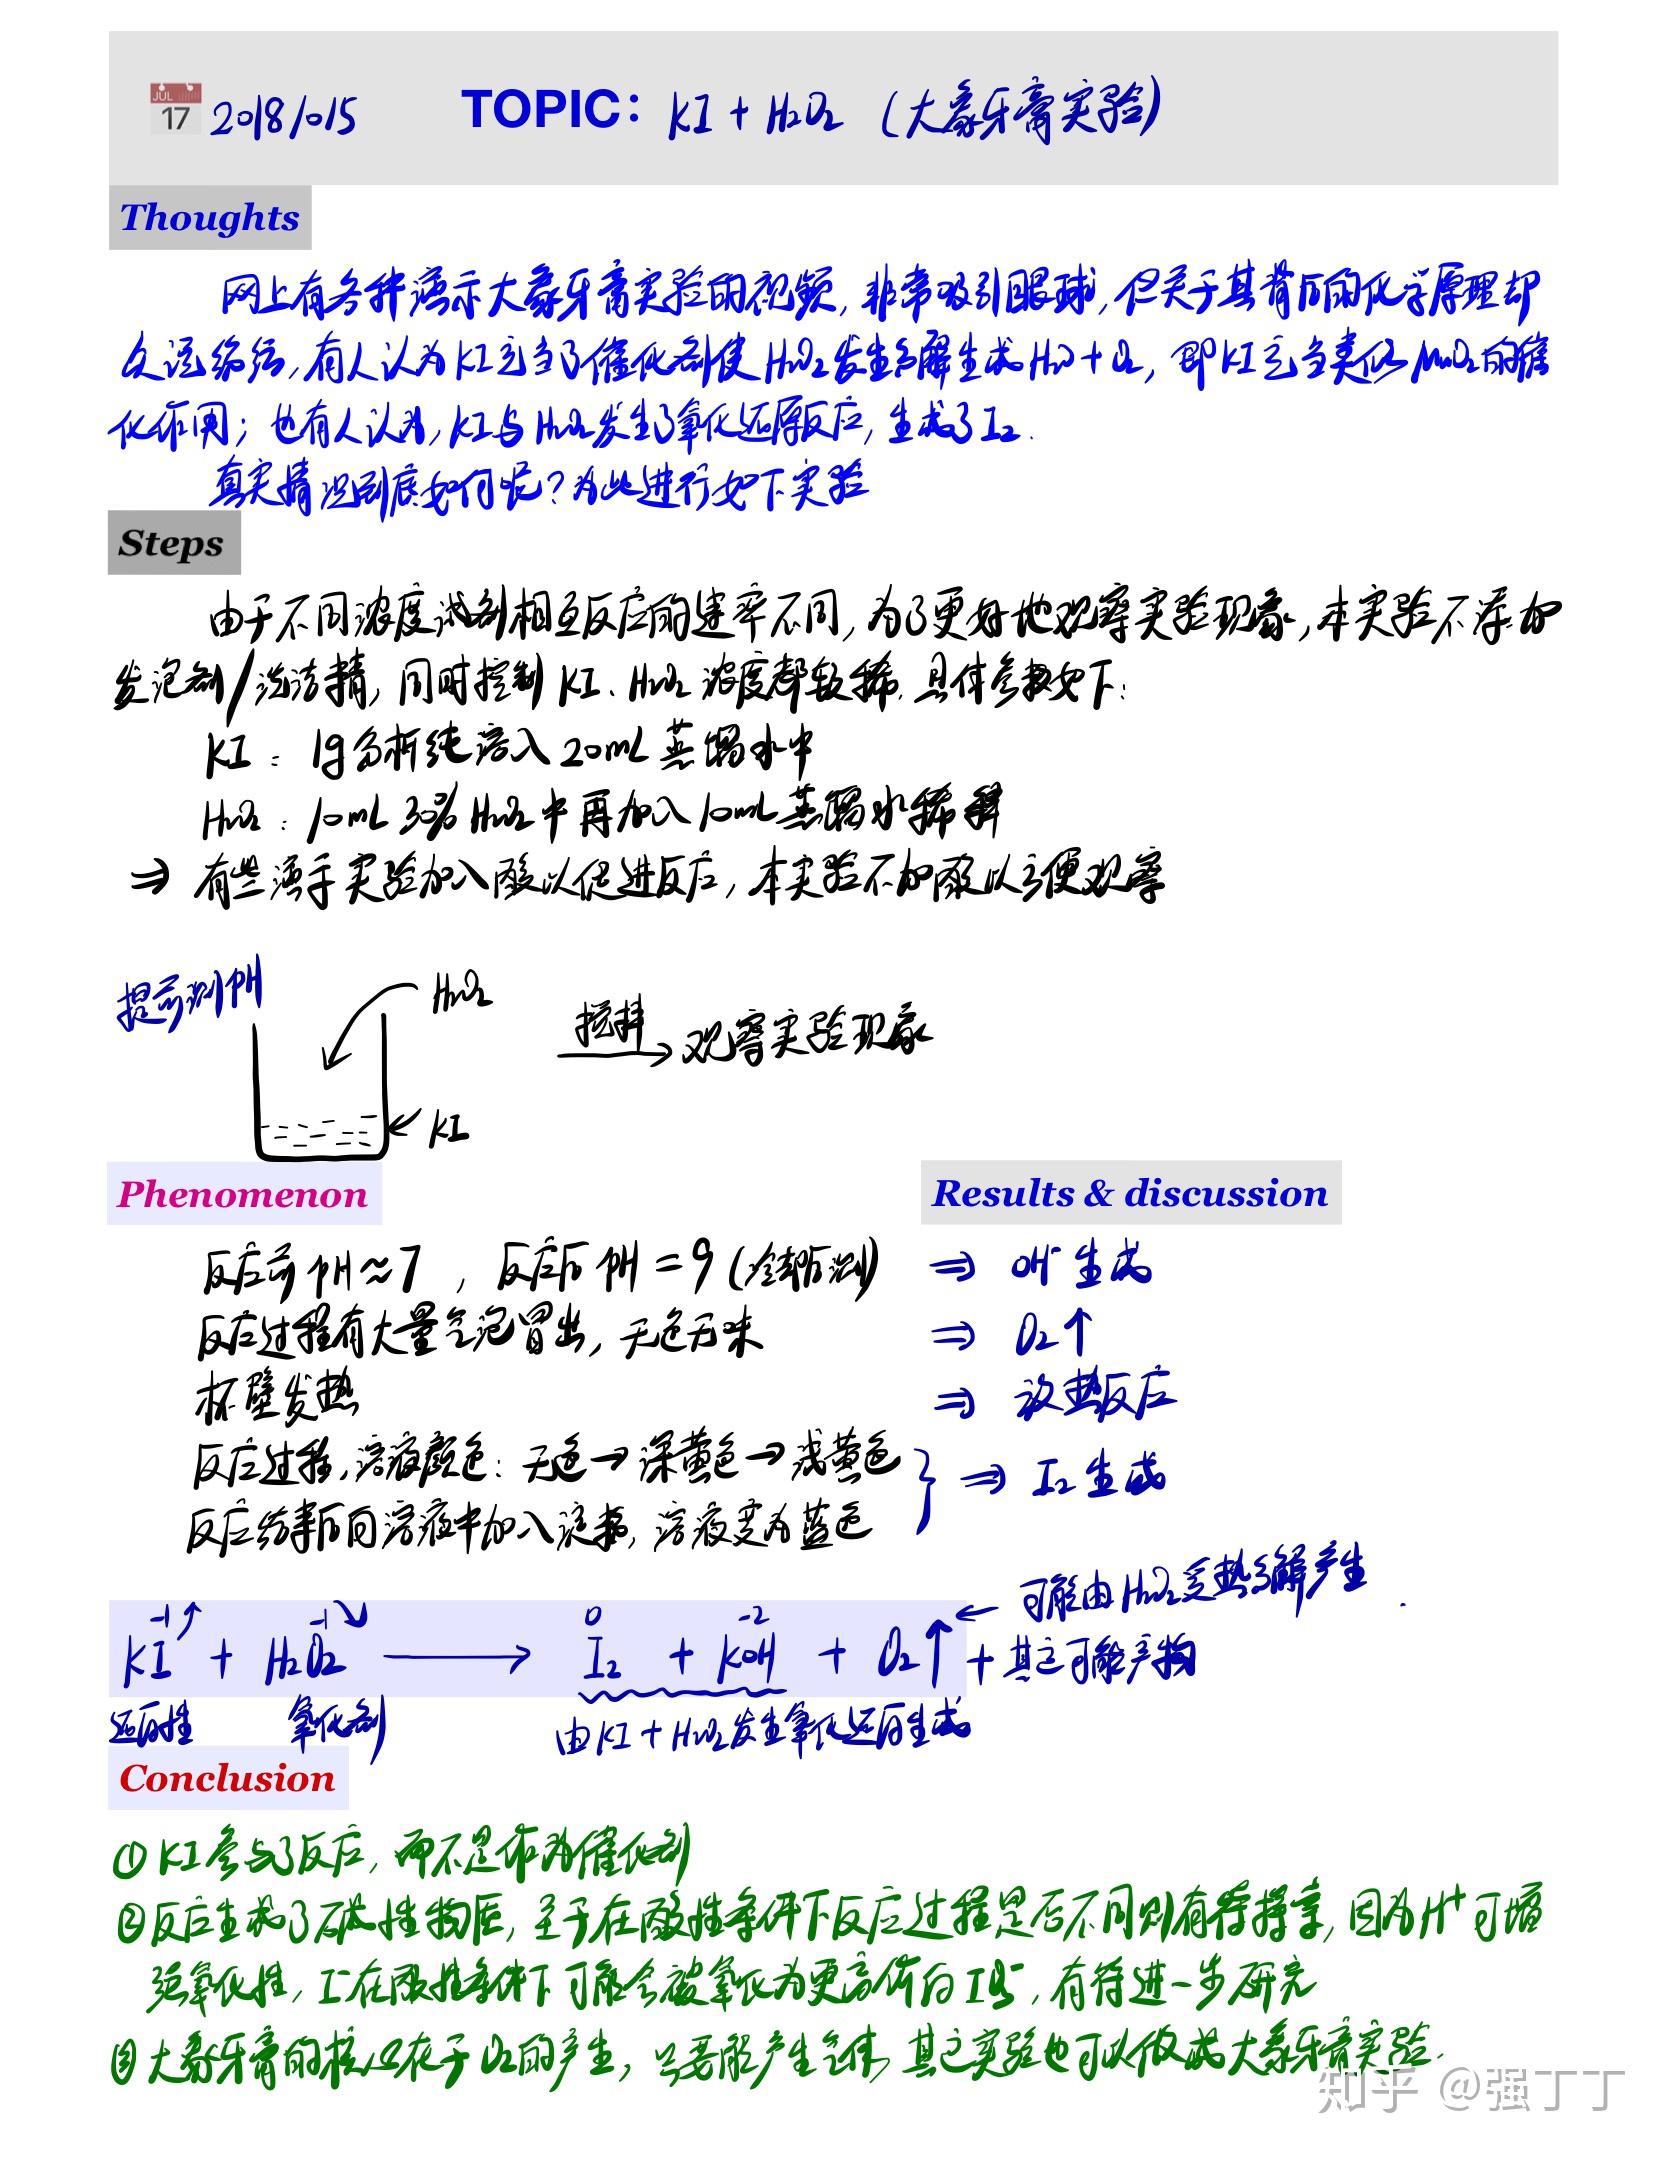 JUL
17
2018/10/5
TOPIC: KI + H₂O₂ (大象牙膏实验)
Thoughts
网上有各种演示大象牙膏实验的视频,非常吸引眼球,但关于其背后的化学原理却
众说纷纭,有人认为KI充当了催化剂使H₂O₂发生分解生成H₂O+O₂,即KI充当类似MnO₂的催
化作用;也有人认为,KI与H₂O₂发生了氧化还原反应,生成了I₂.
真实情况到底如何呢?为此进行如下实验
Steps
由于不同浓度试剂相互反应的速率不同,为了更好地观察实验现象,本实验不添加
发泡剂/洗洁精,同时控制KI、H₂O₂浓度都较稀.具体参数如下:
KI:1g分析纯溶入20mL蒸馏水中
H₂O₂:10mL 30% H₂O₂中再加入10mL蒸馏水稀释
⇒ 有些演示实验加入酸以促进反应,本实验不加酸以方便观察
提前测pH
H₂O₂
搅拌
→ 观察实验现象
KI
Phenomenon
Results & discussion
反应前pH≈7,反应后pH=9(冷却后测) ⇒ OH⁻生成
反应过程有大量气泡冒出,无色无味 ⇒ O₂↑
杯壁发热 ⇒ 放热反应
反应过程,溶液颜色:无色→深黄色→浅黄色
} ⇒ I₂生成
反应结束后向溶液中加入淀粉,溶液变为蓝色
← 可能由H₂O₂受热分解产生
-1 -1 0 -2
KI + H₂O₂ → I₂ + KOH + O₂↑ + 其它可能产物
还原性 氧化剂 由KI+H₂O₂发生氧化还原生成
Conclusion
①KI参与了反应,而不是作为催化剂
②反应生成了碱性物质,至于在酸性条件下反应过程是否不同则有待探究,因为H⁺可增
强氧化性,I⁻在酸性条件下可能会被氧化为更高价的IO₃⁻,有待进一步研究
③大象牙膏的核心在于O₂的产生,只要能产生气体,其它实验也可以做成大象牙膏实验.
知乎 @强丁丁